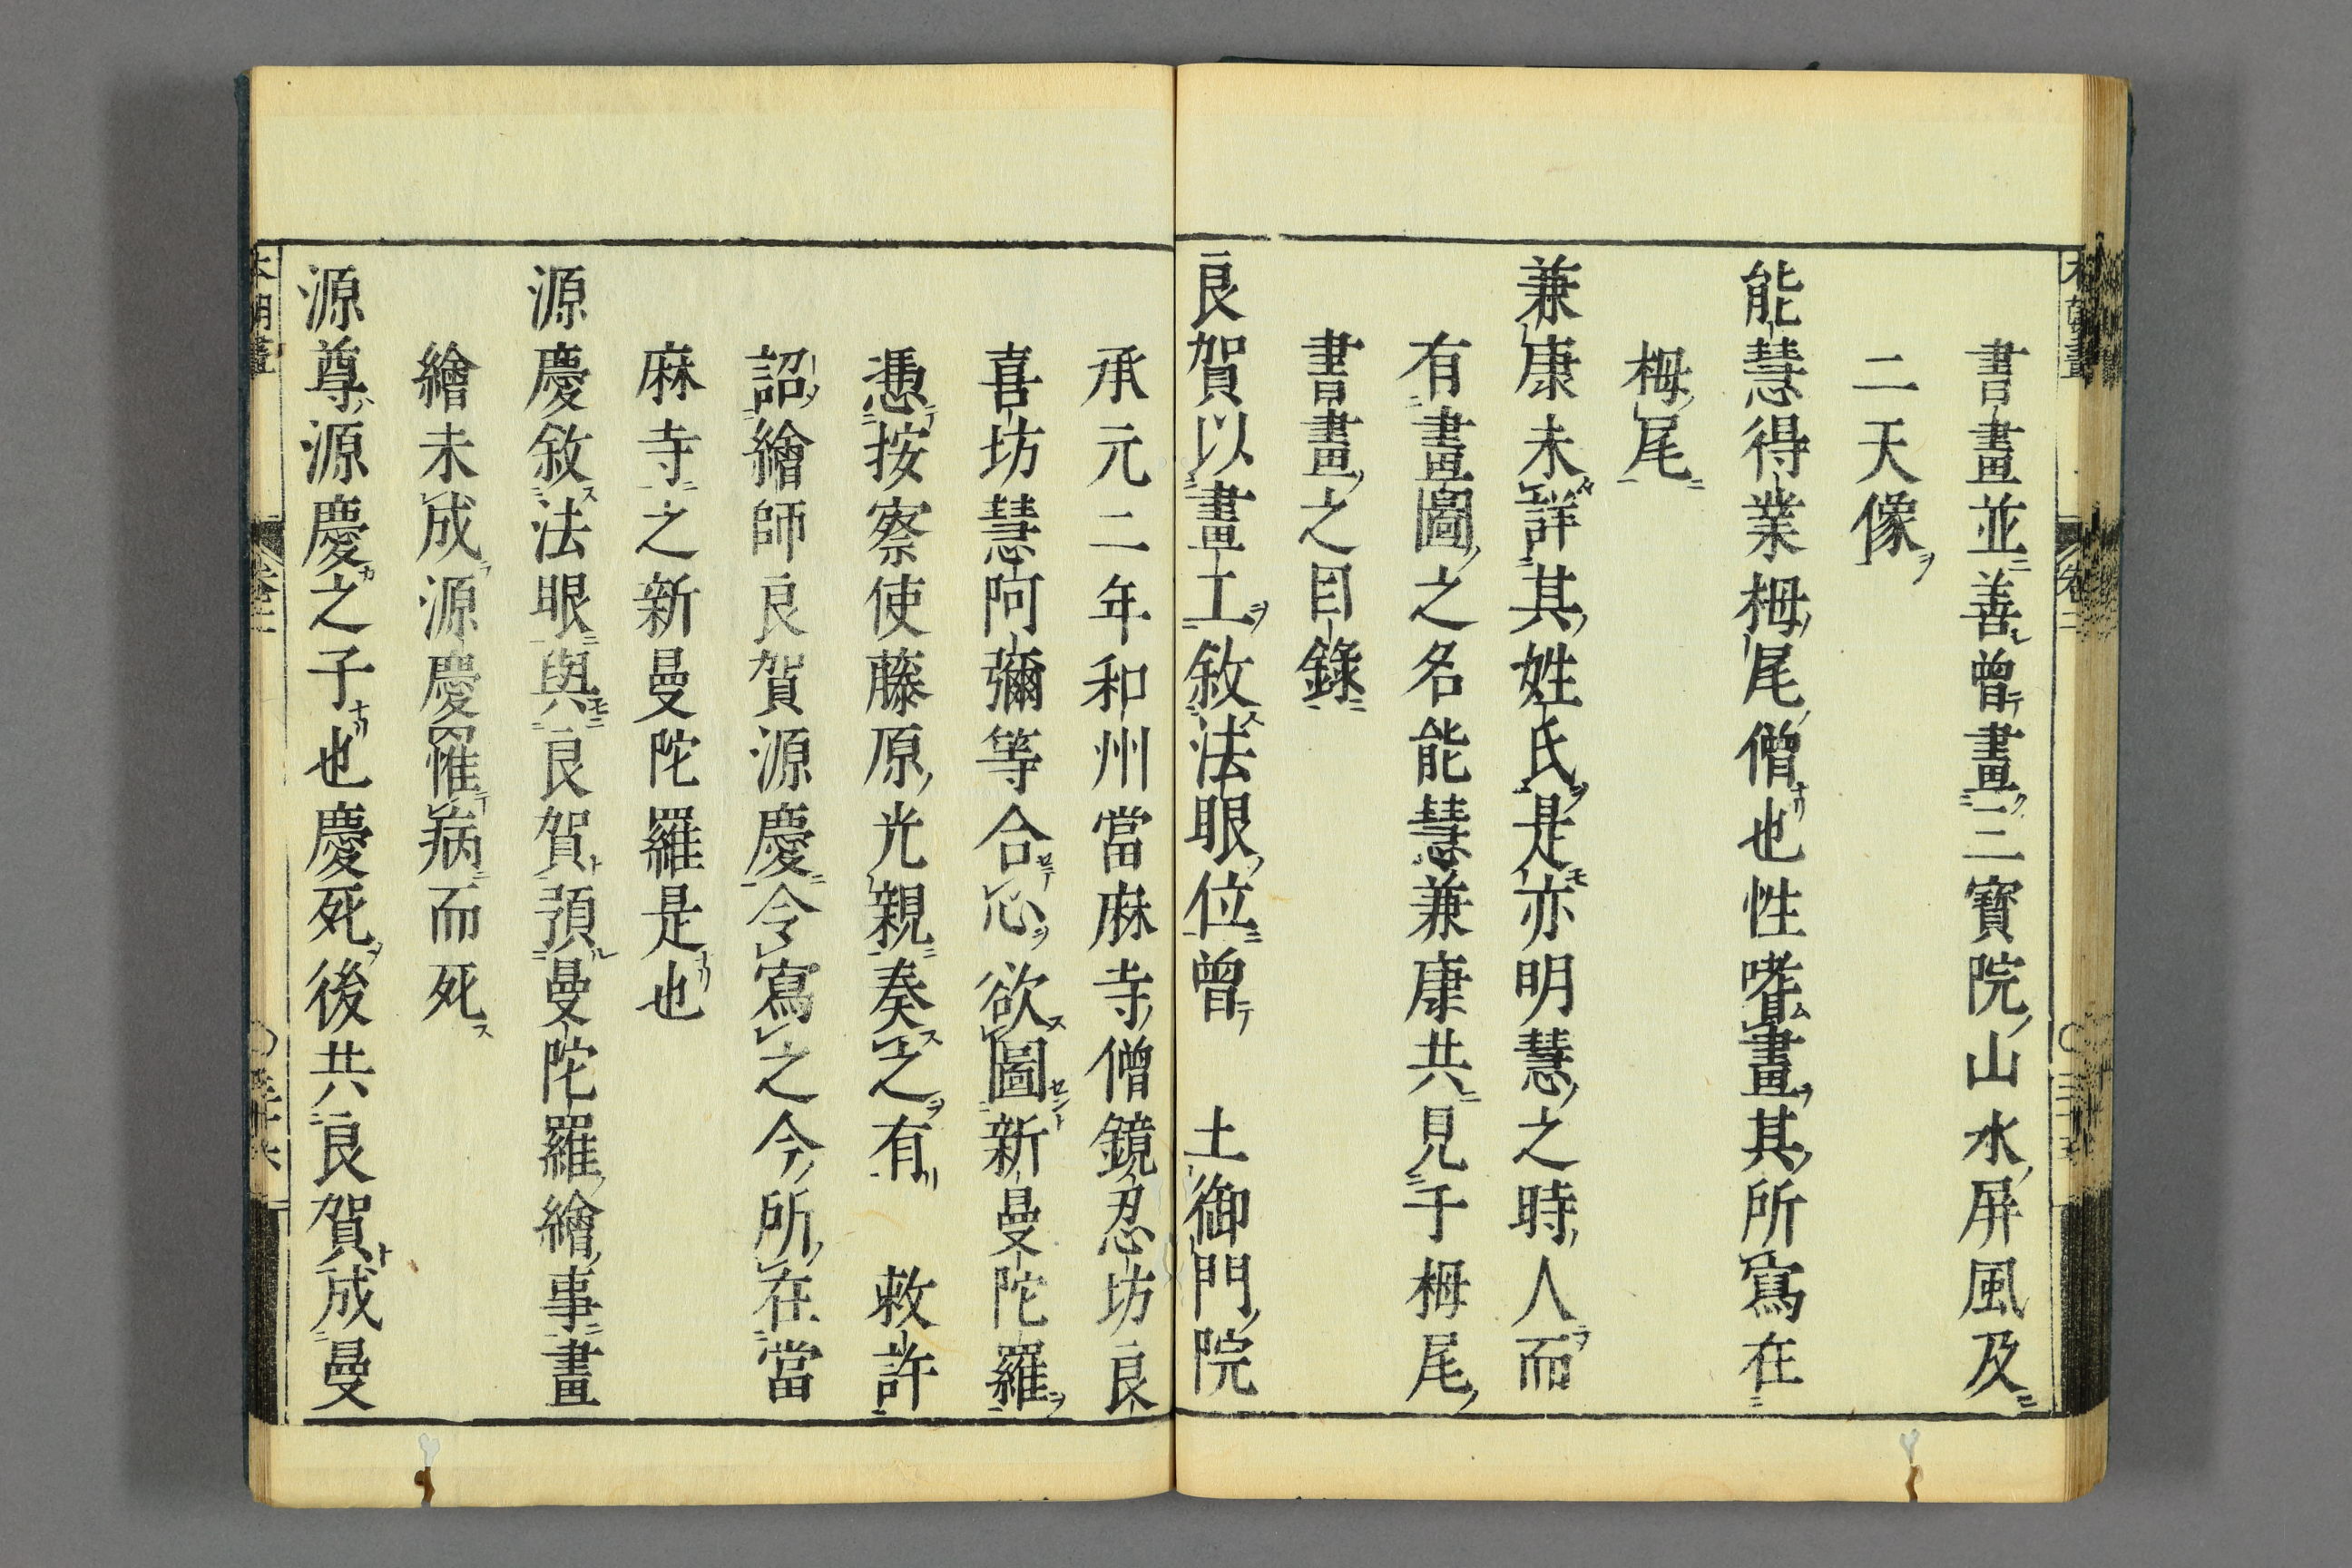 書畫並善曾畫三寶院山水屏風及
二天像
能慧得業栂尾僧也性嗜畫其所寫在
栂尾
兼康未詳其姓氏是亦明慧之時人而
有畫圖之名能慧兼康共見于栂尾
書畫之目錄
良賀以畫工敘法眼位曾 土御門院
承元二年和州當麻寺僧鏡忍坊良
喜坊慧阿彌等合心欲圖新曼陀羅
憑按察使藤原光親奏之有 敕許
詔繪師良賀源慶令寫之今所在當
麻寺之新曼陀羅是也
源慶敘法眼與良賀預曼陀羅繪事畫
繪未成源慶罹病而死
源尊源慶之子也慶死後共良賀成曼